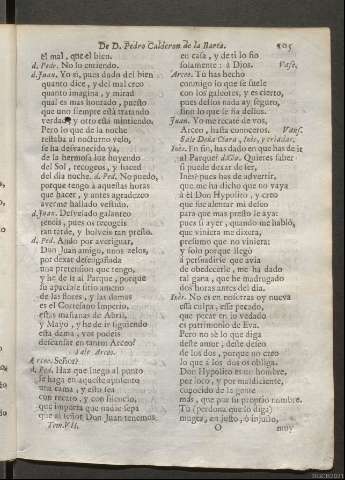 De D. Pedro Calderon de la Barca. 505
el mal, que el bien.
d. Pedr. No su entiendo.
d. Juan. Yo sí, pues dado del bien
quanto dice, y del mal creo
quanto imagina, y mirad
qual es mas honrado, puesto
que uno siempre està tratando
verdad, y otro està mintiendo.
Pero lo que de la noche
restaba al nocturno velo,
se ha desvanecido ya,
de la hermosa luz huyendo
del Sol, recogeos, y haced
del dia noche. d. Ped. No puedo,
porque tengo à aquestas horas
que hacer, y antes agradezco
averme hallado vestido.
d. Juan. Desvelado galanteo
teneis, pues os recogeis
tan tarde, y bolveis tan presto.
d. Ped. Ando por averiguar,
Don Juan amigo, unos zelos,
por dexar desengañada
una pretension que tengo,
y he de ir al Parque, porque
su apacible sitio ameno
de las flores, y las damas
es el Cortesano Imperio,
estas mañanas de Abril,
y Mayo, y he de ir siguiendo
esta dama; vos podeis
descansar en tanto. Arceo?
Sale Arceo.
Arceo. Señor?
d. Ped. Haz que luego al punto
se haga en aqueste aposento
una cama, y esta sea
con recato, y con silencio,
que importa que nadie sepa
que al señor Don Juan tenemos
Tom. VII.
en casa, y de ti lo fio
solamente: à Dios. Vase.
Arceo. Tu has hecho
conmigo lo que se suele
con los galeotes, y es cierto,
pues dellos nada ay seguro,
sino lo que se fia dellos.
Juan. Yo me recate de vos,
Arceo, hasta conoceros. Vans.
Sale Doña Clara, Inès, y criadas.
Inès. En fin, has dado en que has de ir
al Parque? d. Cla. Quieres saber
si puede dexar de ser,
Inès? pues has de advertir,
que me ha dicho que no vaya
à èl Don Hypolito, y creo
que fue alentar mi deseo
para que mas presto le aya:
pues si ayer, quando me hablò,
que viniera me dixera,
presumo que no viniera;
y solo porque llegò
à persuadirse que avia
de obedecerle, me ha dado
tal gana, que he madrugado
dos horas antes del dia.
Inès. No es en nosotras oy nueva
essa culpa, esse pecado,
que pecar en lo vedado
es patrimonio de Eva.
Pero no sè lo que diga
deste amor, deste deseo
de los dos, porque no creo
lo que à los dos os obliga.
Don Hypolito es un hombre,
por loco, y por maldiciente,
conocido de la gente
mas, que por su proprio nombre.
Tu (perdona que lo diga)
muger, en justo, ò injusto,
O muy